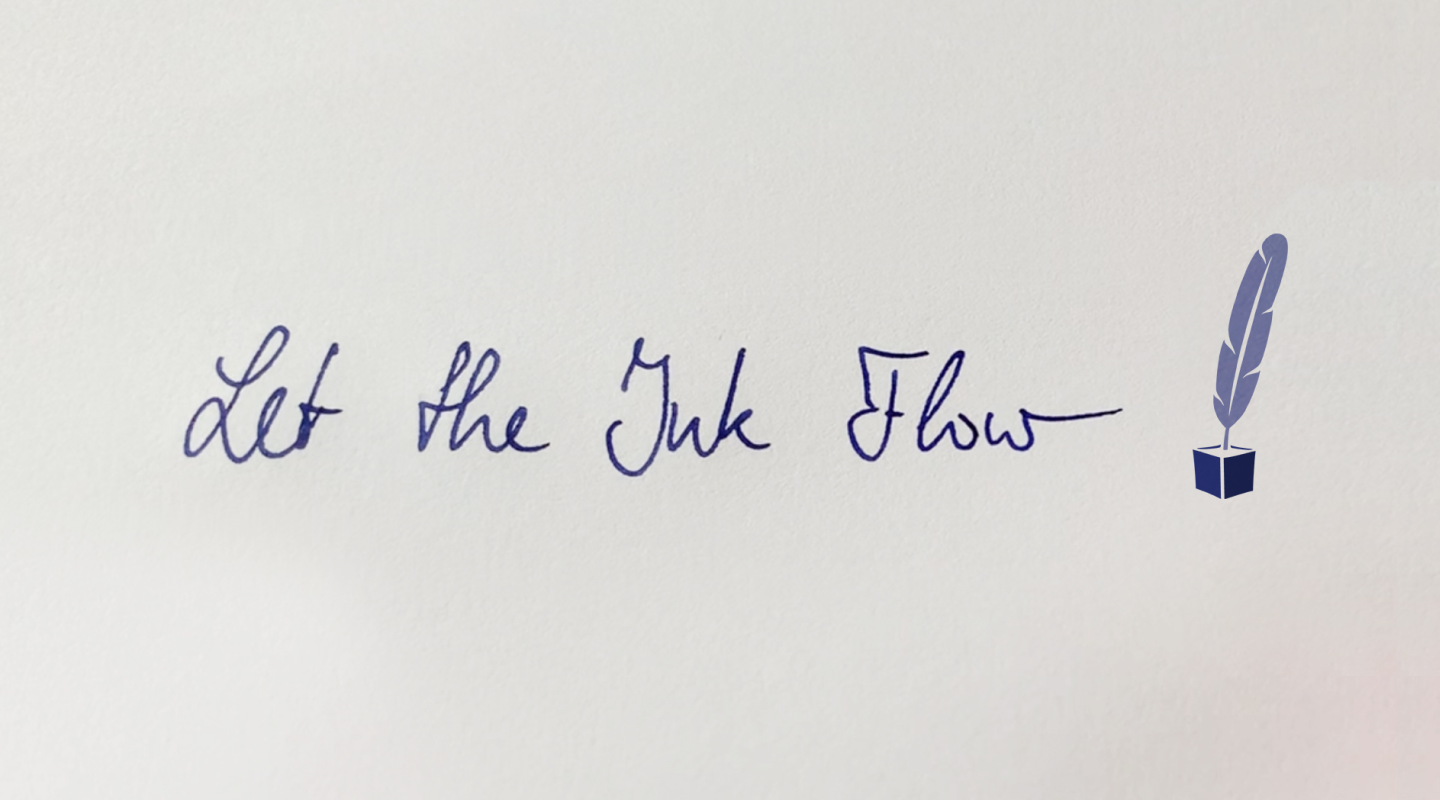 Let the Ink Flow